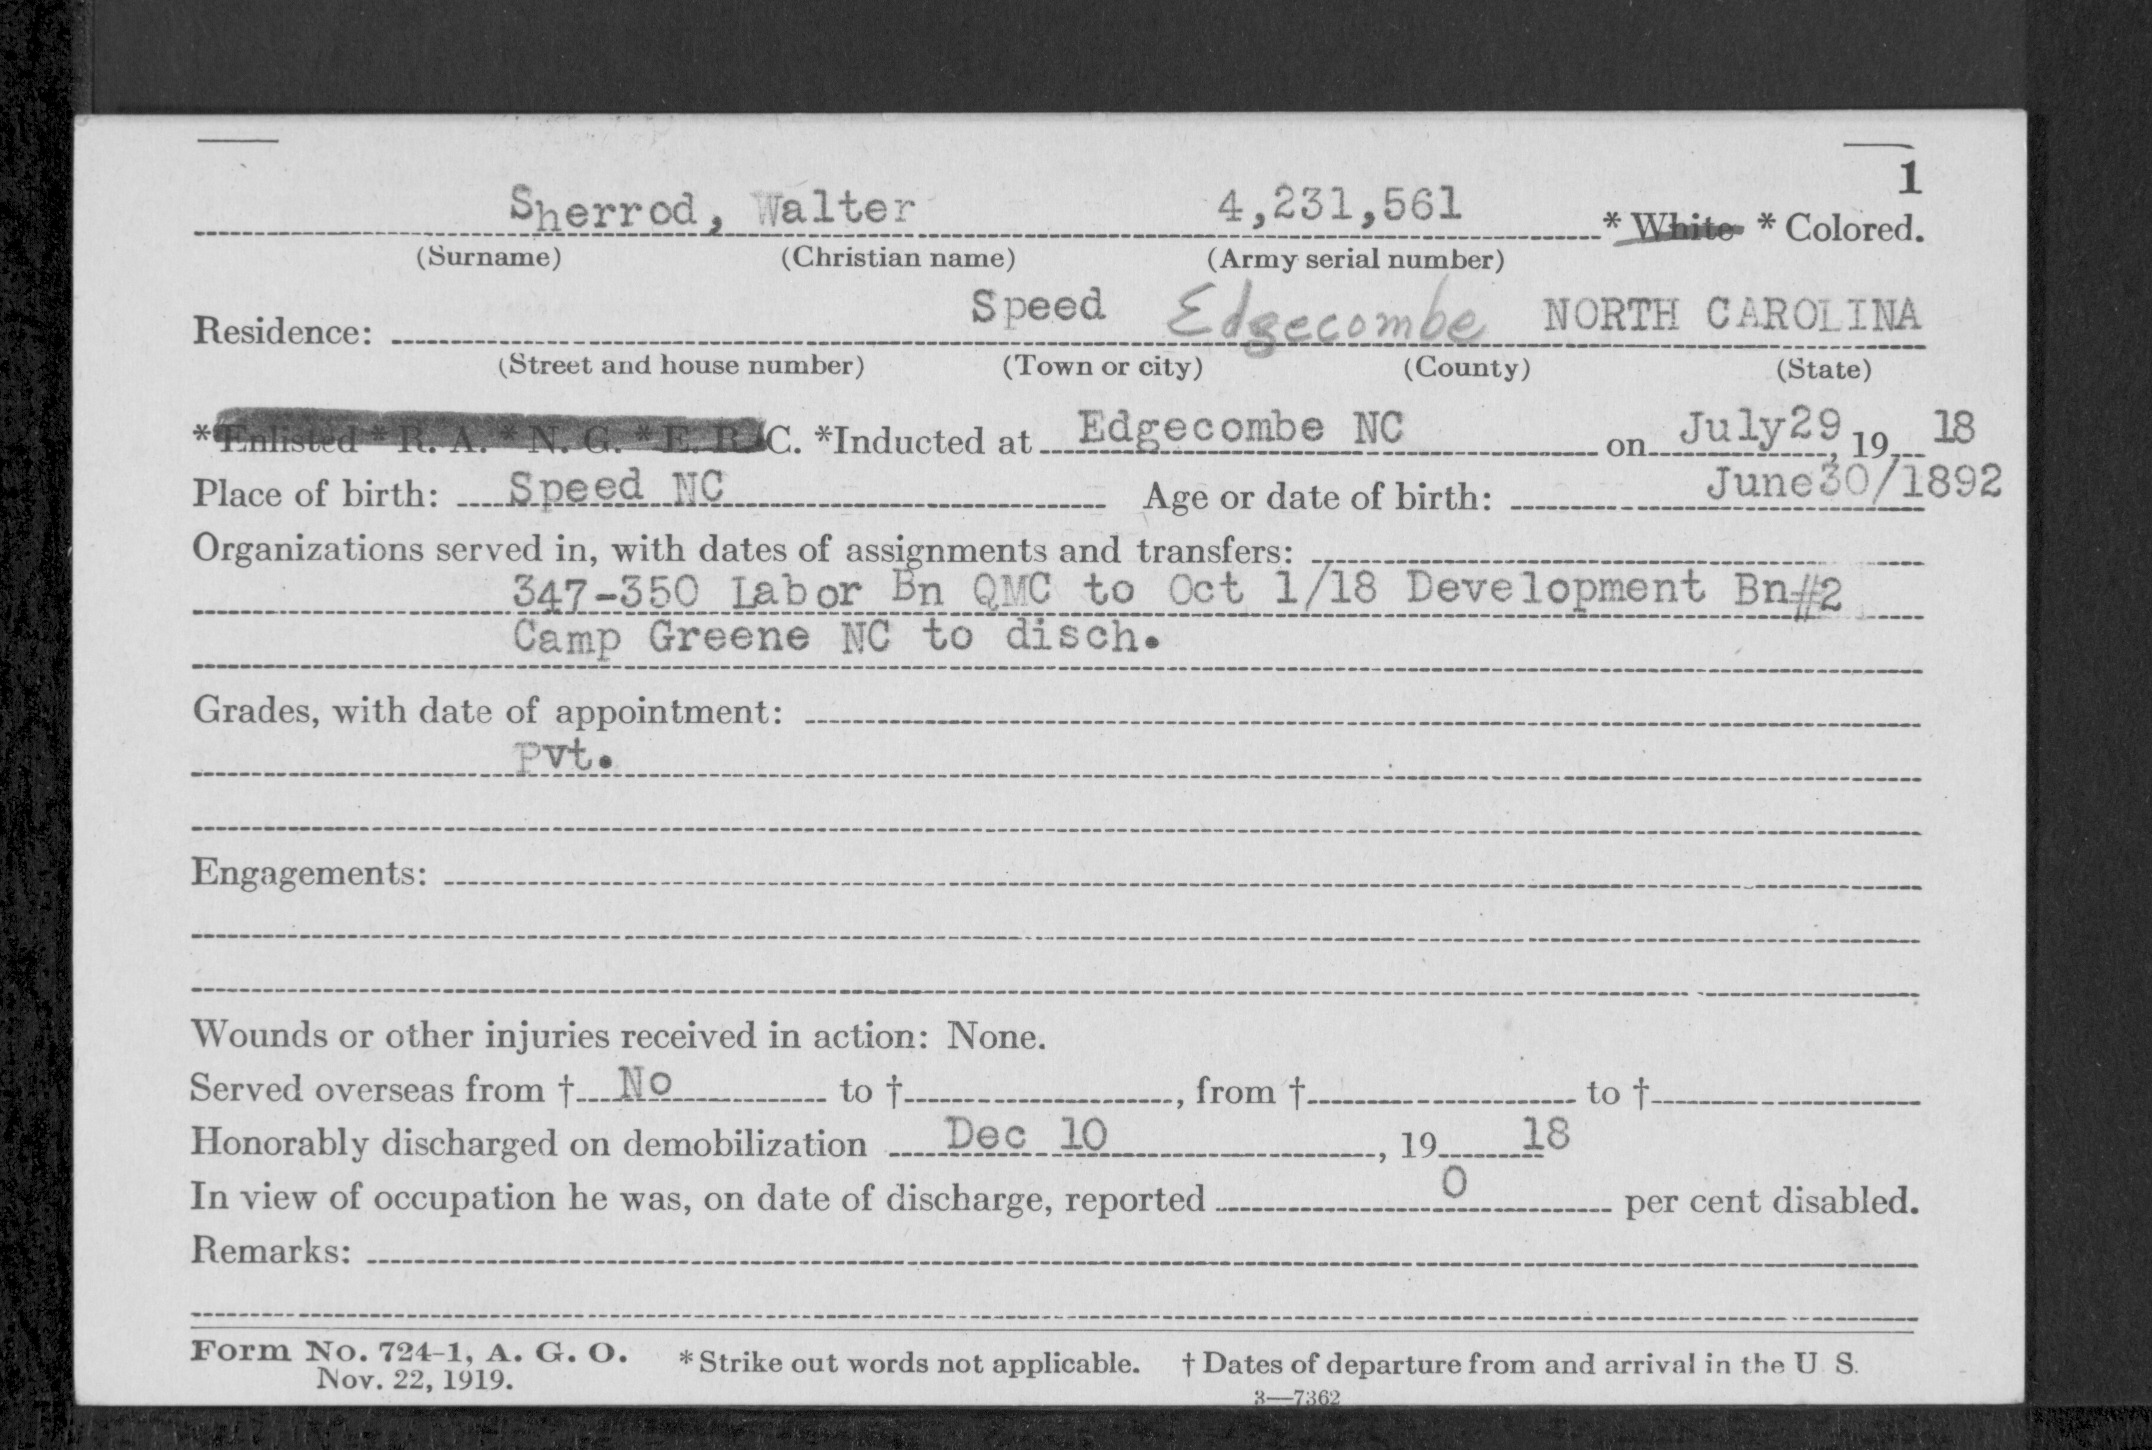 1
Sherrod, Walter 4,231,561 * White * Colored.
(Surname) (Christian name) (Army serial number)
Residence: Speed Edgecombe NORTH CAROLINA
(Street and house number) (Town or city) (County) (State)
*Enlisted * R. A. * N. G. * E. R. C. *Inducted at Edgecombe NC on July29, 19 18
Place of birth: Speed NC Age or date of birth: June30/1892
Organizations served in, with dates of assignments and transfers:
347-350 Labor Bn QMC to Oct 1/18 Development Bn#2
Camp Greene NC to disch.
Grades, with date of appointment:
Pvt.
Engagements:
Wounds or other injuries received in action: None.
Served overseas from † No to † , from † to †
Honorably discharged on demobilization Dec 10 , 19 18
In view of occupation he was, on date of discharge, reported 0 per cent disabled.
Remarks:
Form No. 724-1, A. G. O. *Strike out words not applicable. † Dates of departure from and arrival in the U S.
Nov. 22, 1919.
3—7362